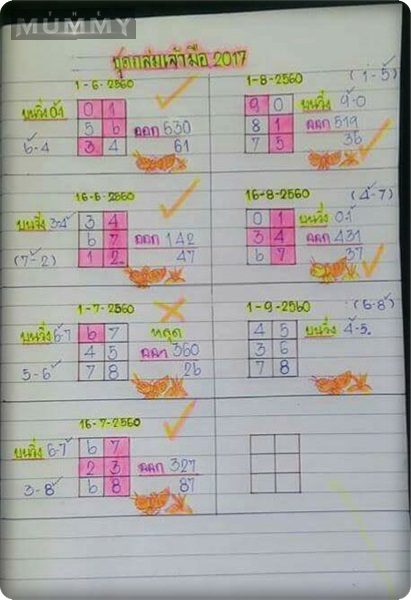 THE
MUMMY
ชุดถล่มเจ้ามือ 2017
1-6-2560
บนวิ่ง 0-1
0 1
5 6 ออก 630
6-4
3 4 61
16-6-2560
บนวิ่ง 3-4
3 4
6 7 ออก 142
(7-2)
1 2 47
1-7-2560
บนวิ่ง 6-7
6 7 หลุด
4 5 ออก 360
5-6
7 8 26
16-7-2560
บนวิ่ง 6-7
6 7
2 3 ออก 327
3-8
6 8 87
1-8-2560 (1-5)
9 0 บนวิ่ง 9-0
8 1 ออก 519
7 5 36
16-8-2560 (4-7)
0 1 บนวิ่ง 0-1
3 4 ออก 431
6 7 37
1-9-2560 (5-8)
4 5 บนวิ่ง 4-5
3 6
7 8